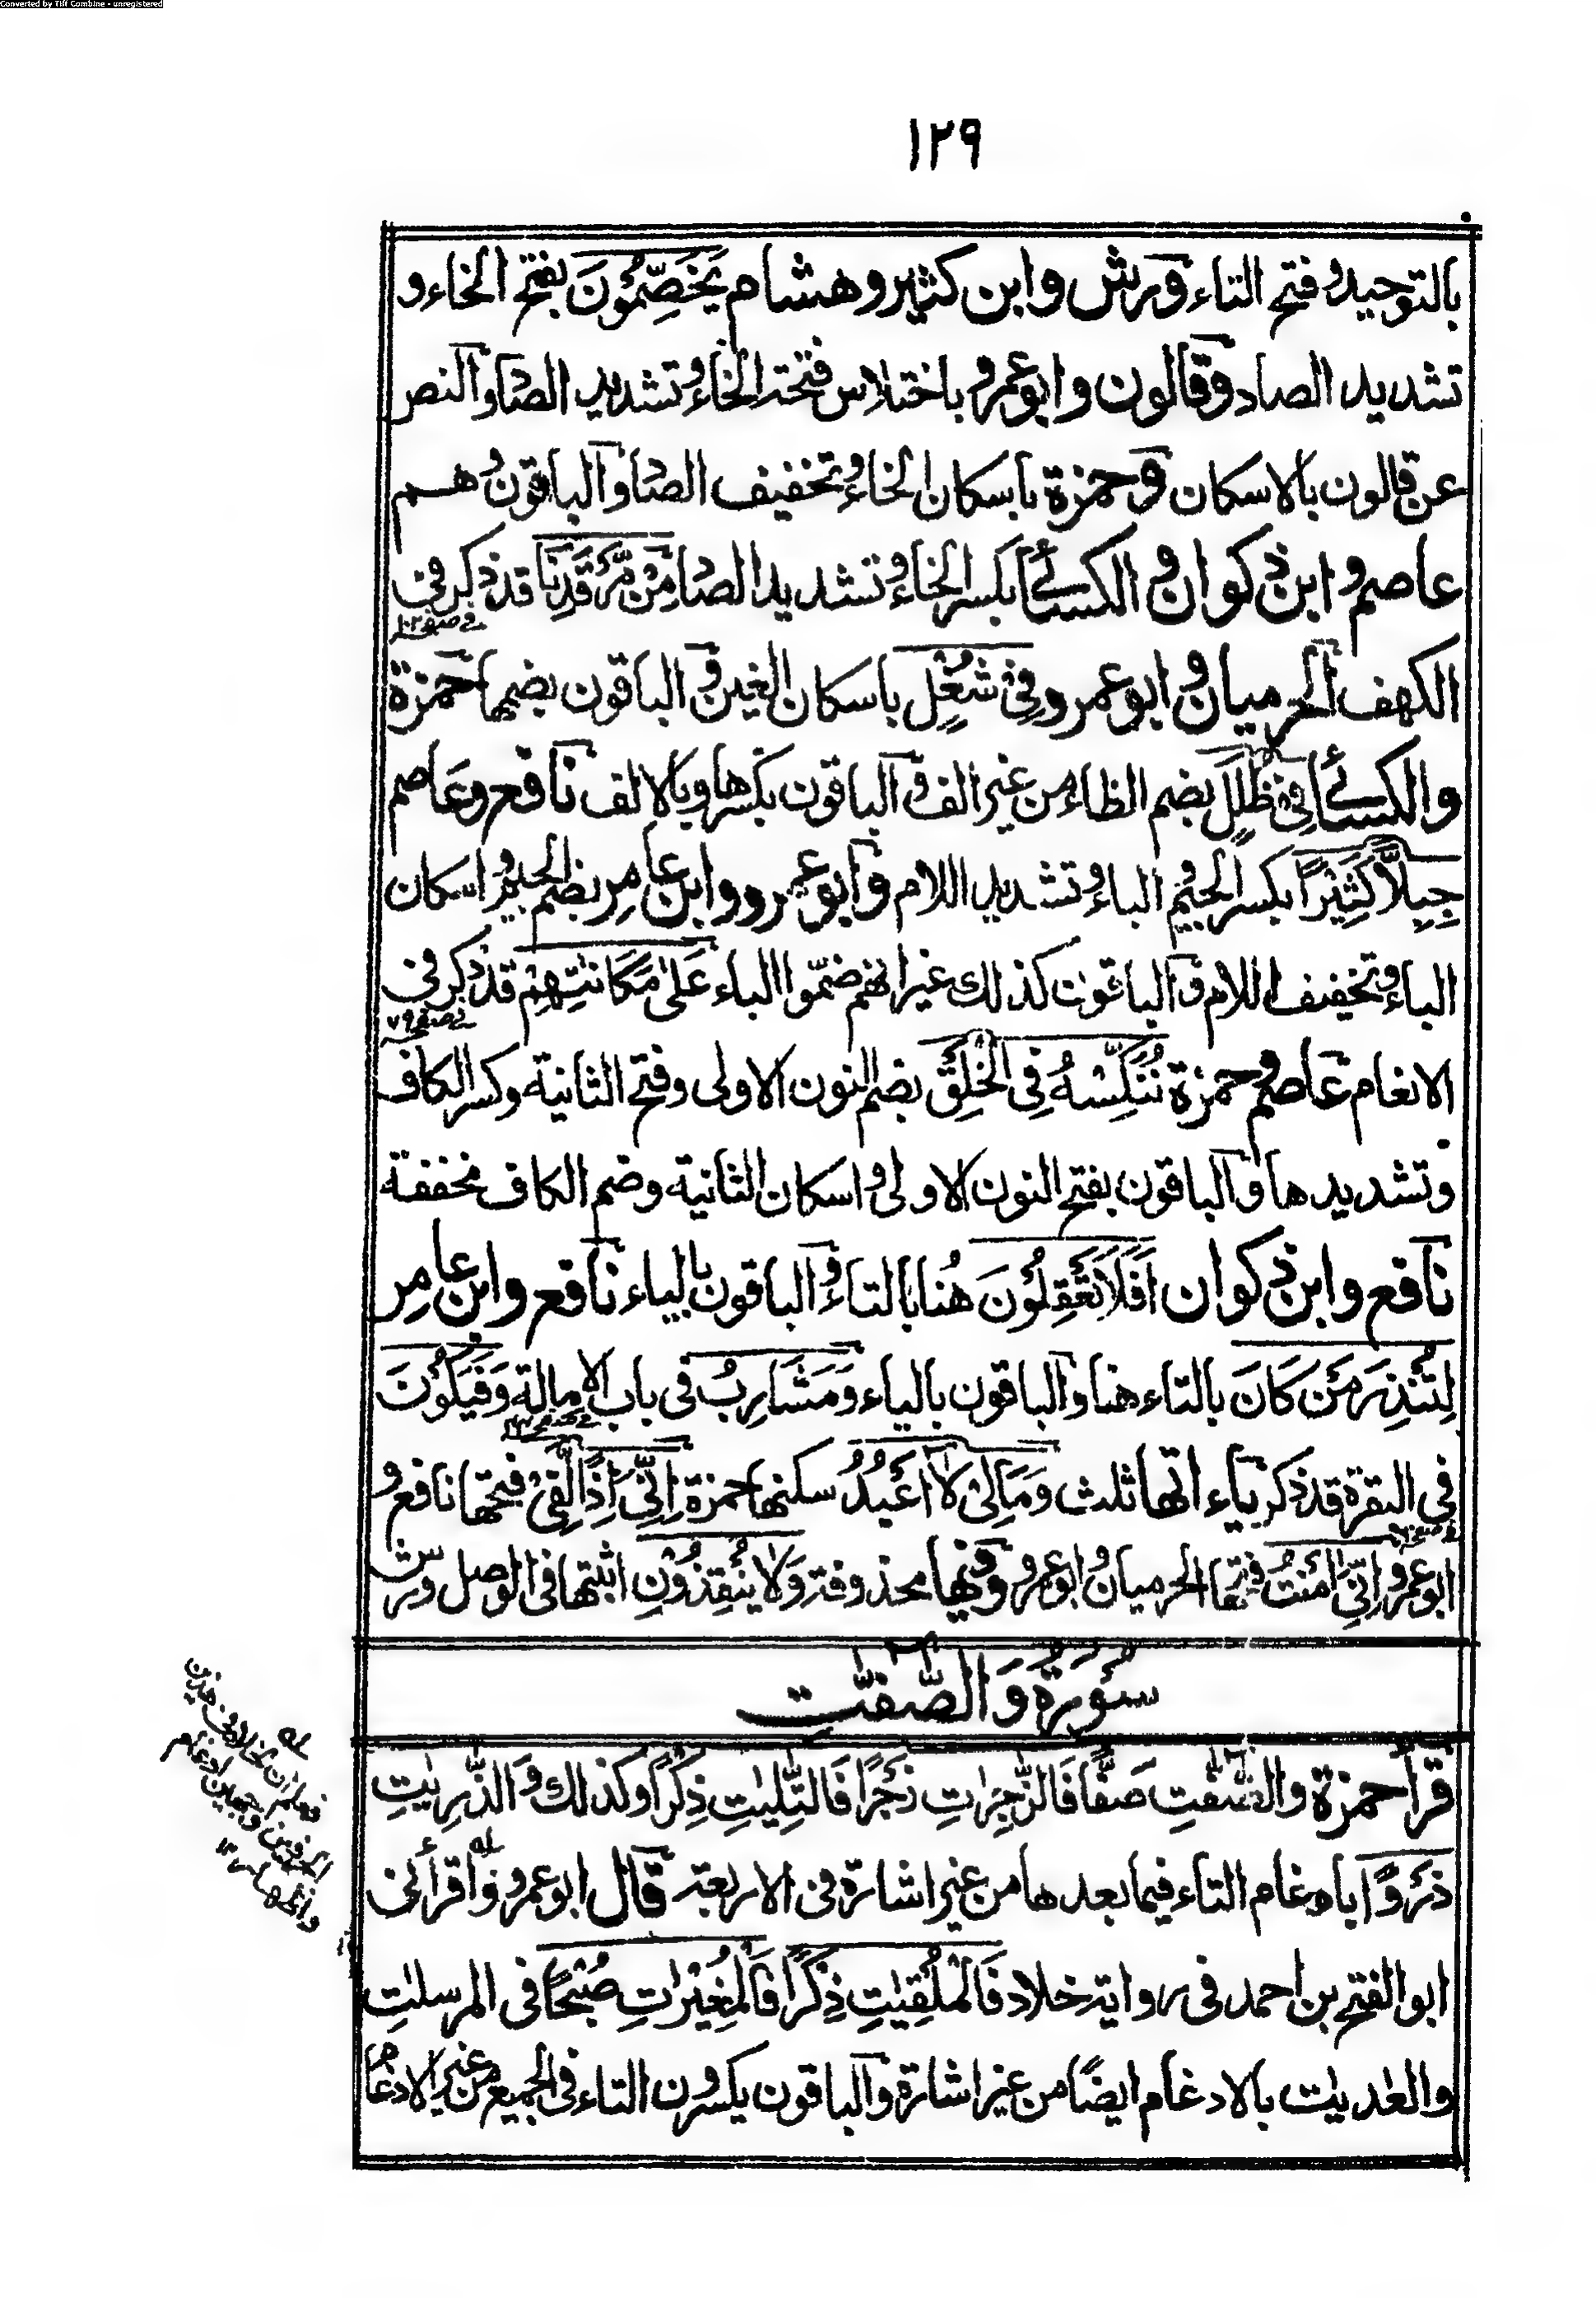 Converted by Tiff Combine - unregistered
١٢٩
بالتوحيد و فتح التاء ورش وابن كثير و هشام يَخَصِّمُوْنَ بفتح الخاء و
تشديد الصاد وقالون و ابو عمرو باختلاس فتحة الخاء و تشديد الصاد والنص
عن قالون بالاسكان وحمزة باسكان الخاء و تخفيف الصاد والباقون و هم
عاصم و ابن ذكوان و الكسائى بكسر الخاء و تشديد الصاد مِنْ مَّرْقَدِنَا قد ذكر فى
فى صفحه ١٠٢
الكهف الحرميان و ابو عمرو فِىْ شُغُلٍ باسكان الغين و الباقون بضمها حمزة
والكسائى فِىْ ظُلَلٍ بضم الظاء من غير الف و الباقون بكسرها وبالالف نافع وعاصم
جِبِلًّا كَثِيْرًا بكسر الجيم و الباء و تشديد اللام وابو عمرو وابن عامر بضم الجيم و اسكان
الباء و تخفيف اللام و الباقون كذلك غير انهم ضمّوا الباء عَلٰى مَكَانَتِهِمْ قد ذكر فى
فى صفحه ٧٩
الانعام عاصم و حمزة نُنَكِّسْهُ فِى الْخَلْقِ بضم النون الاولى وفتح الثانية وكسر الكاف
وتشديدها والباقون بفتح النون الاولى و اسكان الثانية وضم الكاف مخففة
نافع وابن ذكوان اَفَلَا تَعْقِلُوْنَ هُنا بالتاء و الباقون بالياء نافع وابن عامر
لِتُنْذِرَ مَنْ كَانَ بالتاء هنا والباقون بالياء وَمَشَارِبُ فى باب الامالة وَفَيَكُوْنَ
فى البقرة قد ذكر ياء اتها ثلث وَمَالِىَ لَا اَعْبُدُ سكنها حمزة اِنِّىْ اِذًا لَّفِىْ فتحها نافع و
ابو عمرو اِنِّىْ اٰمَنْتُ فتحها الحرميان و ابو عمرو وفيها محذوفة وَلَا يُنْقِذُوْنِ اثبتها فى الوصل ورش
سُوْرَةُ وَالصّٰفّٰتِ
قرأ حمزة والصّٰفّٰتِ صَفًّا فَالزّٰجِرٰتِ زَجْرًا فَالتّٰلِيٰتِ ذِكْرًا وكذلك وَ الذّٰرِيٰتِ
ذَرْوًا بادغام التاء فيما بعدها من غير اشارة فى الاربعة قال ابو عمرو وَاقرأنى
ابو الفتح بن احمد فى رواية خلاد فَالْمُلْقِيٰتِ ذِكْرًا فَالْمُغِيْرٰتِ صُبْحًا فى المرسلت
والعٰديٰت بالادغام ايضًا من غير اشارة والباقون يكسرون التاء فى الجميع من غير الادغام
له
فعلم ان لخلاد فى هذين
الحرفين وجهين ادغام
واظهار ١٢